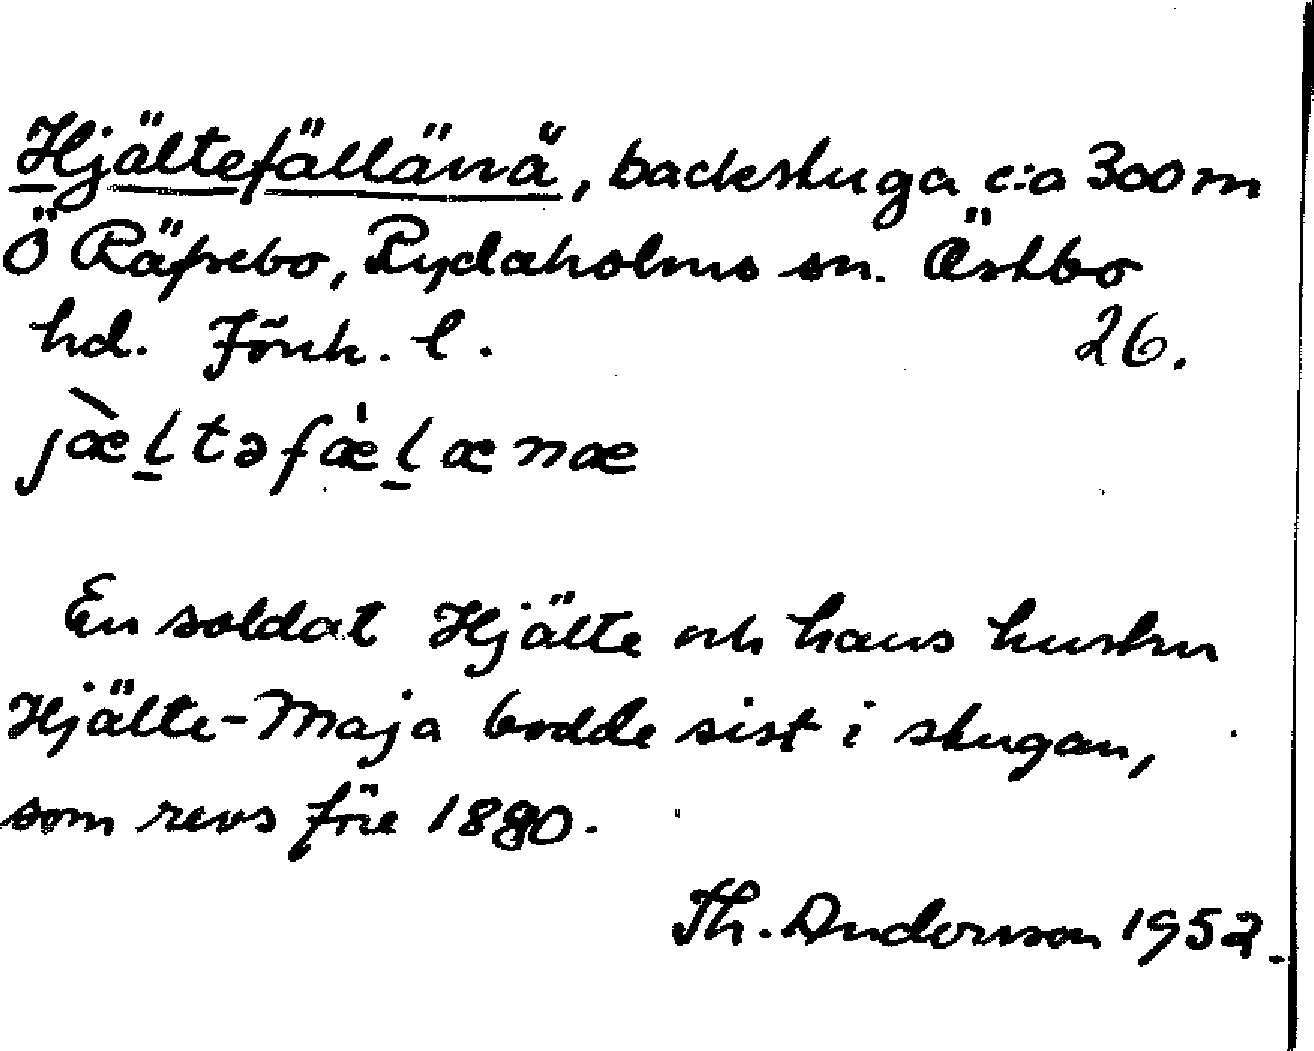 Hjältefällänä, backstuga c:a 300 m
Ö Räfrebo, Rydaholms sn. Östbo
hd. Jönk. l. 26.
jæ̀ltəfæ̍lænæ
En soldat Hjälte och hans hustru
Hjälte-Maja bodde sist i stugan,
som revs före 1890.
Th. Andersson 1952.